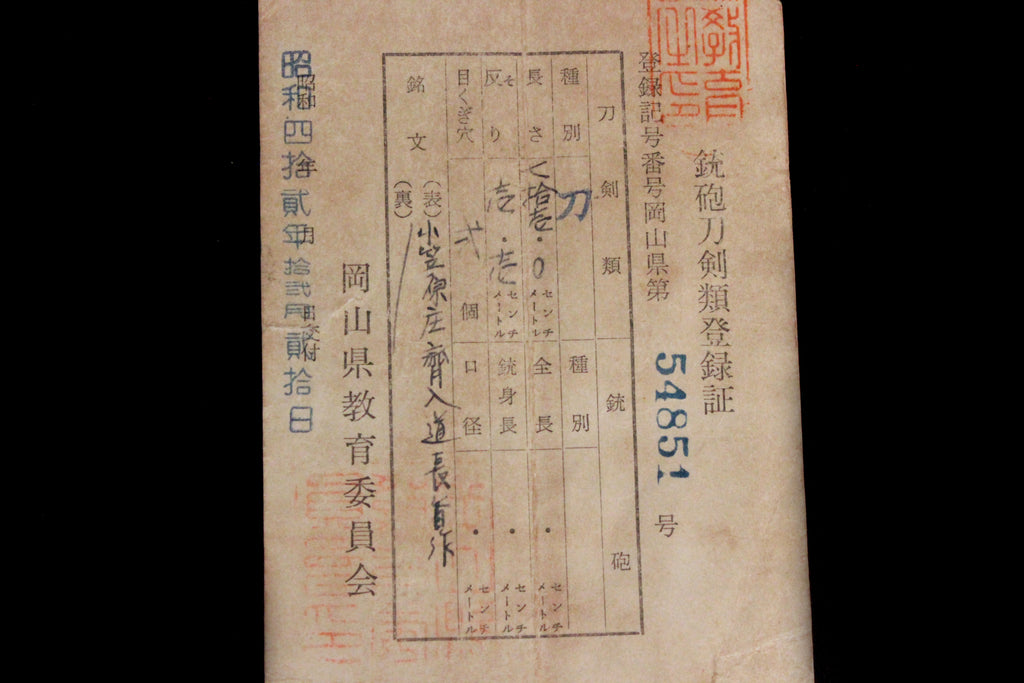 銃砲刀剣類登録証
登録記号番号岡山県第 54851 号
刀剣類 銃砲
種別 刀 種別
長さ 七拾壱・0 センチメートル 全長 ・ センチメートル
反り そ 壱・壱 センチメートル 銃身長 ・ センチメートル
目くぎ穴 弐 個 口径 ・ センチメートル
銘文 (表) 小笠原庄齊入道長旨作
(裏)
岡山県教育委員会
昭和 年 月 日交付
昭和四拾貳年拾弐月貳拾日